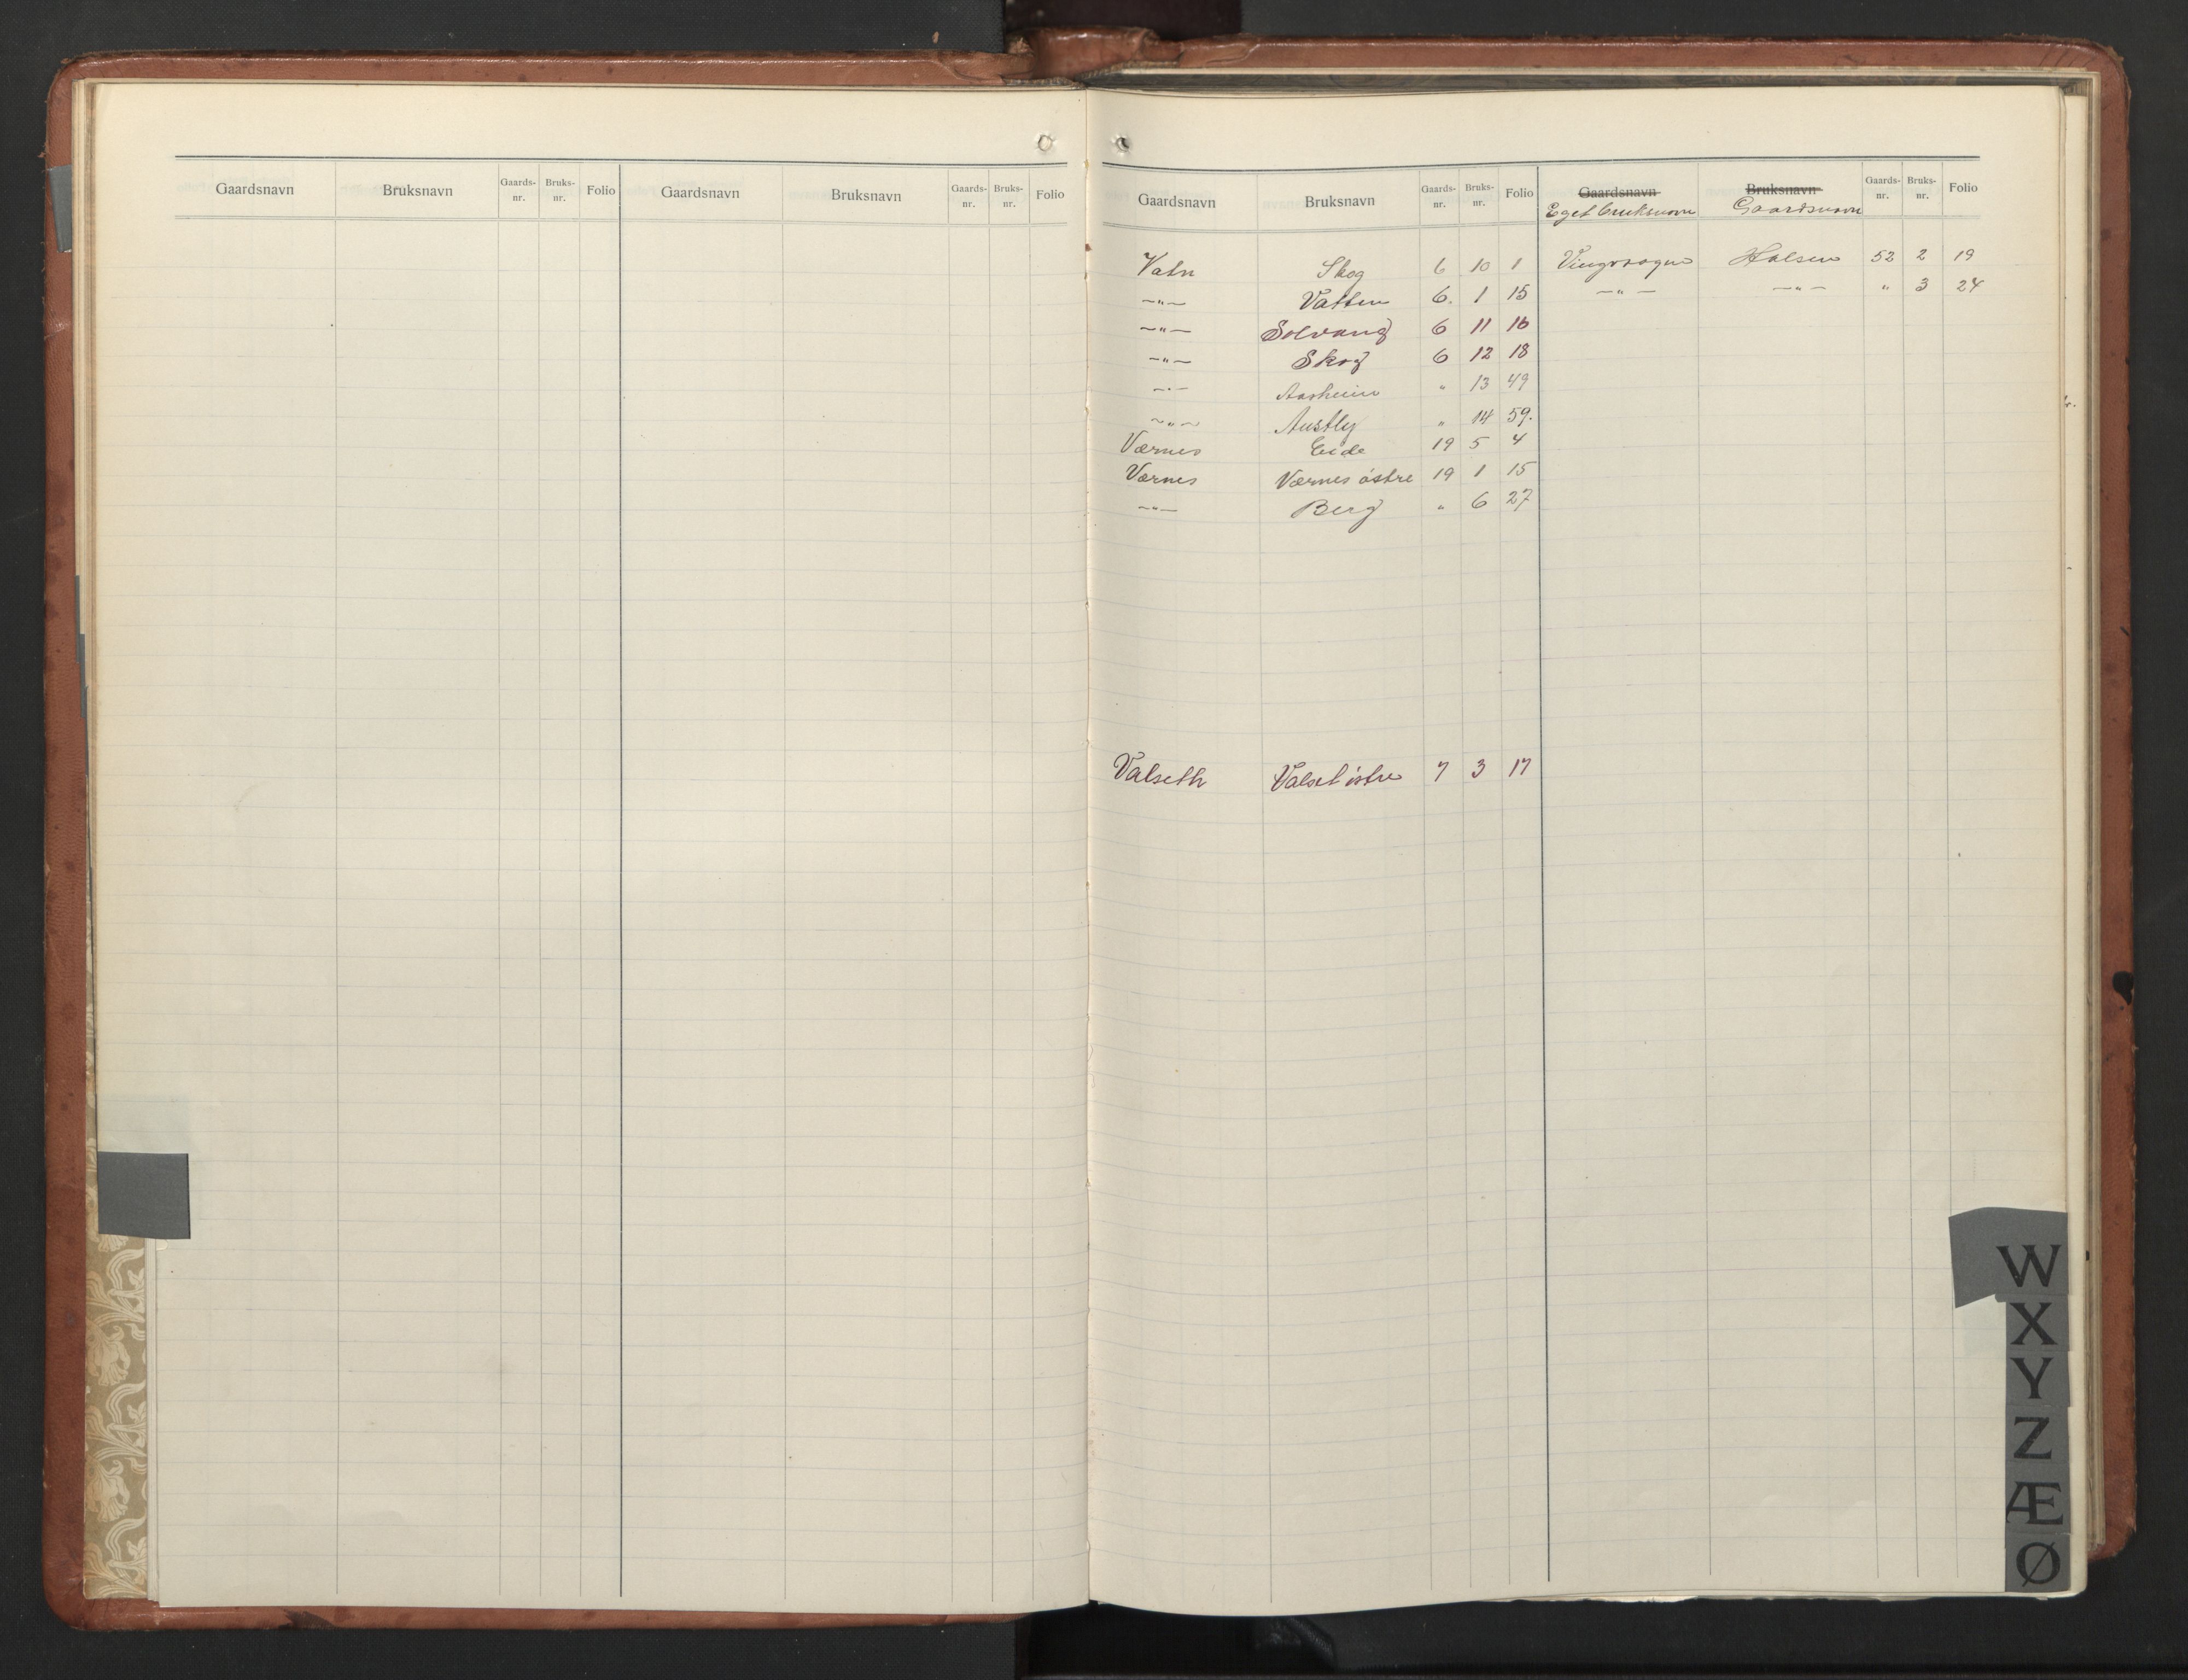 Gaardsnavn Bruksnavn Gaards-nr. Bruks-nr. Folio Gaardsnavn Bruksnavn Gaards-nr. Bruks-nr. Folio
Gaardsnavn Bruksnavn Gaards-nr. Bruks-nr. Folio Gaardsnavn Bruksnavn Gaards-nr. Bruks-nr. Folio
Eget bruksnavn Gaardsnavn
Vatn Skog 6 10 1
—"— Vatten 6. 1 15
—"— Solvang 6 11 16
—"— Skog 6 12 18
—"— Aasheim " 13 49
—"— Austly " 14 59.
Værnes Eide 19 5 4
Værnes Værnes östre 19 1 15
—"— Berg " 6 27
Valseth Valset östre 7 3 17
Vingvagen Halsen 52 2 19
—"— —"— " 3 24
W
X
Y
Z
Æ
Ø